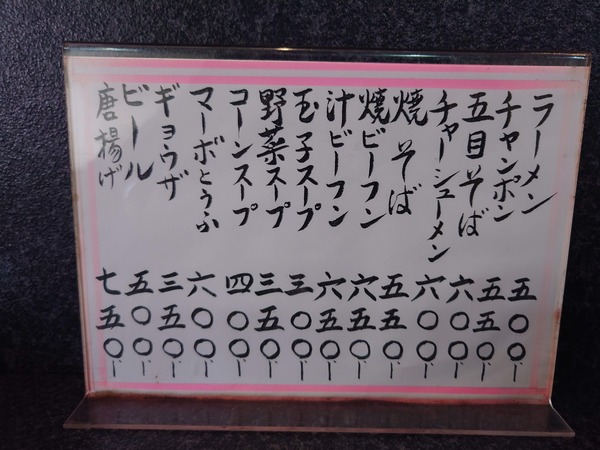 ラーメン 五〇〇
チャンポン 五五〇
五目そば 六〇〇
チャーシューメン 六〇〇
焼そば 五五〇
焼ビーフン 六五〇
汁ビーフン 六五〇
玉子スープ 三〇〇
野菜スープ 三五〇
コーンスープ 四〇〇
マーボとうふ 六〇〇
ギョウザ 三五〇
ビール 五〇〇
唐揚げ 七五〇